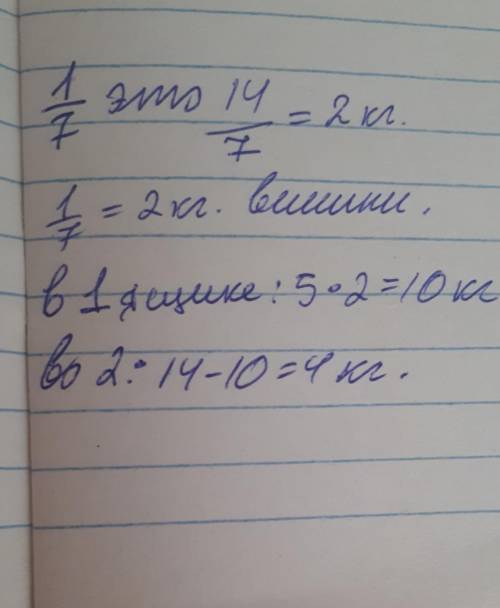 1/7 это 14/7 = 2 кг.
1/7 = 2 кг. вишни.
в 1 ящике: 5·2=10 кг
во 2: 14-10=4 кг.